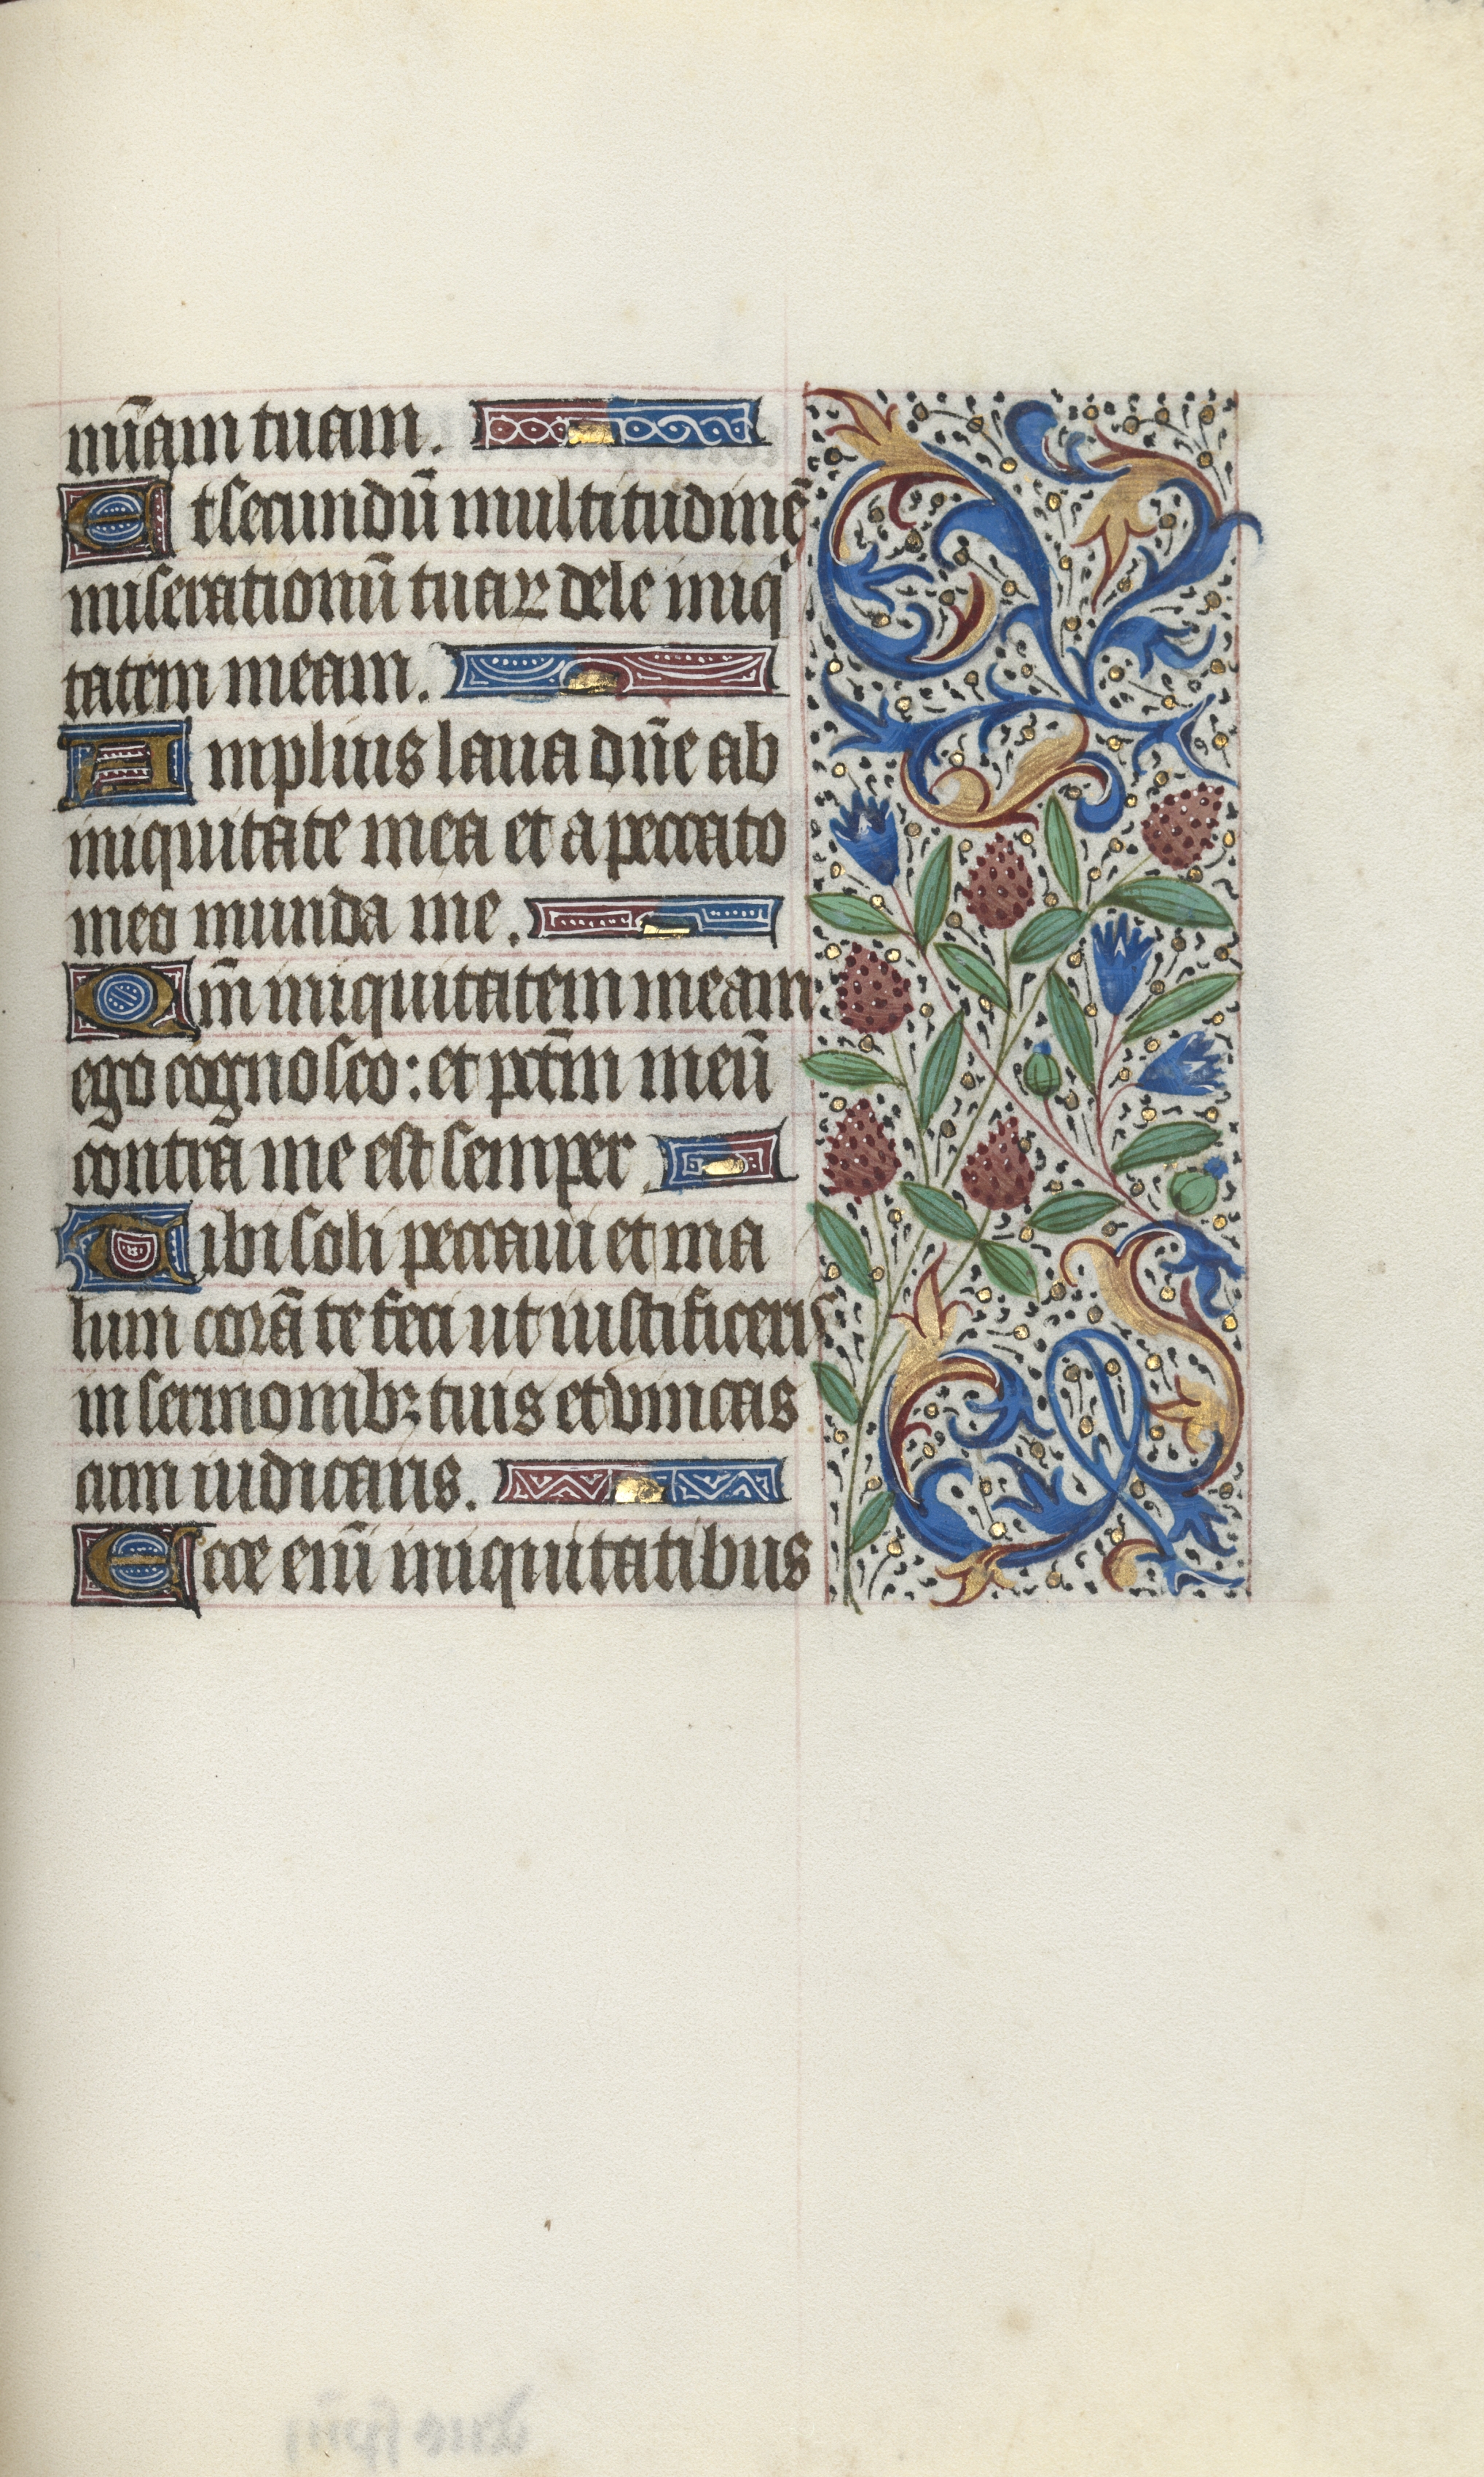 mīam tuam.
Et secundū multitudinē
miserationū tuaꝝ dele iniqⁱ
tatem meam.
Amplius laua dn̄e ab
iniquitate mea et a peccato
meo munda me.
Qm̄ iniquitatem meam
ego cognosco: et pctm̄ meū
contra me est semper.
Tibi soli peccaui et ma
lum corā te feci ut iustificeris
in sermonibꝫ tuis et vincas
cum iudicaris.
Ecce enī iniquitatibus